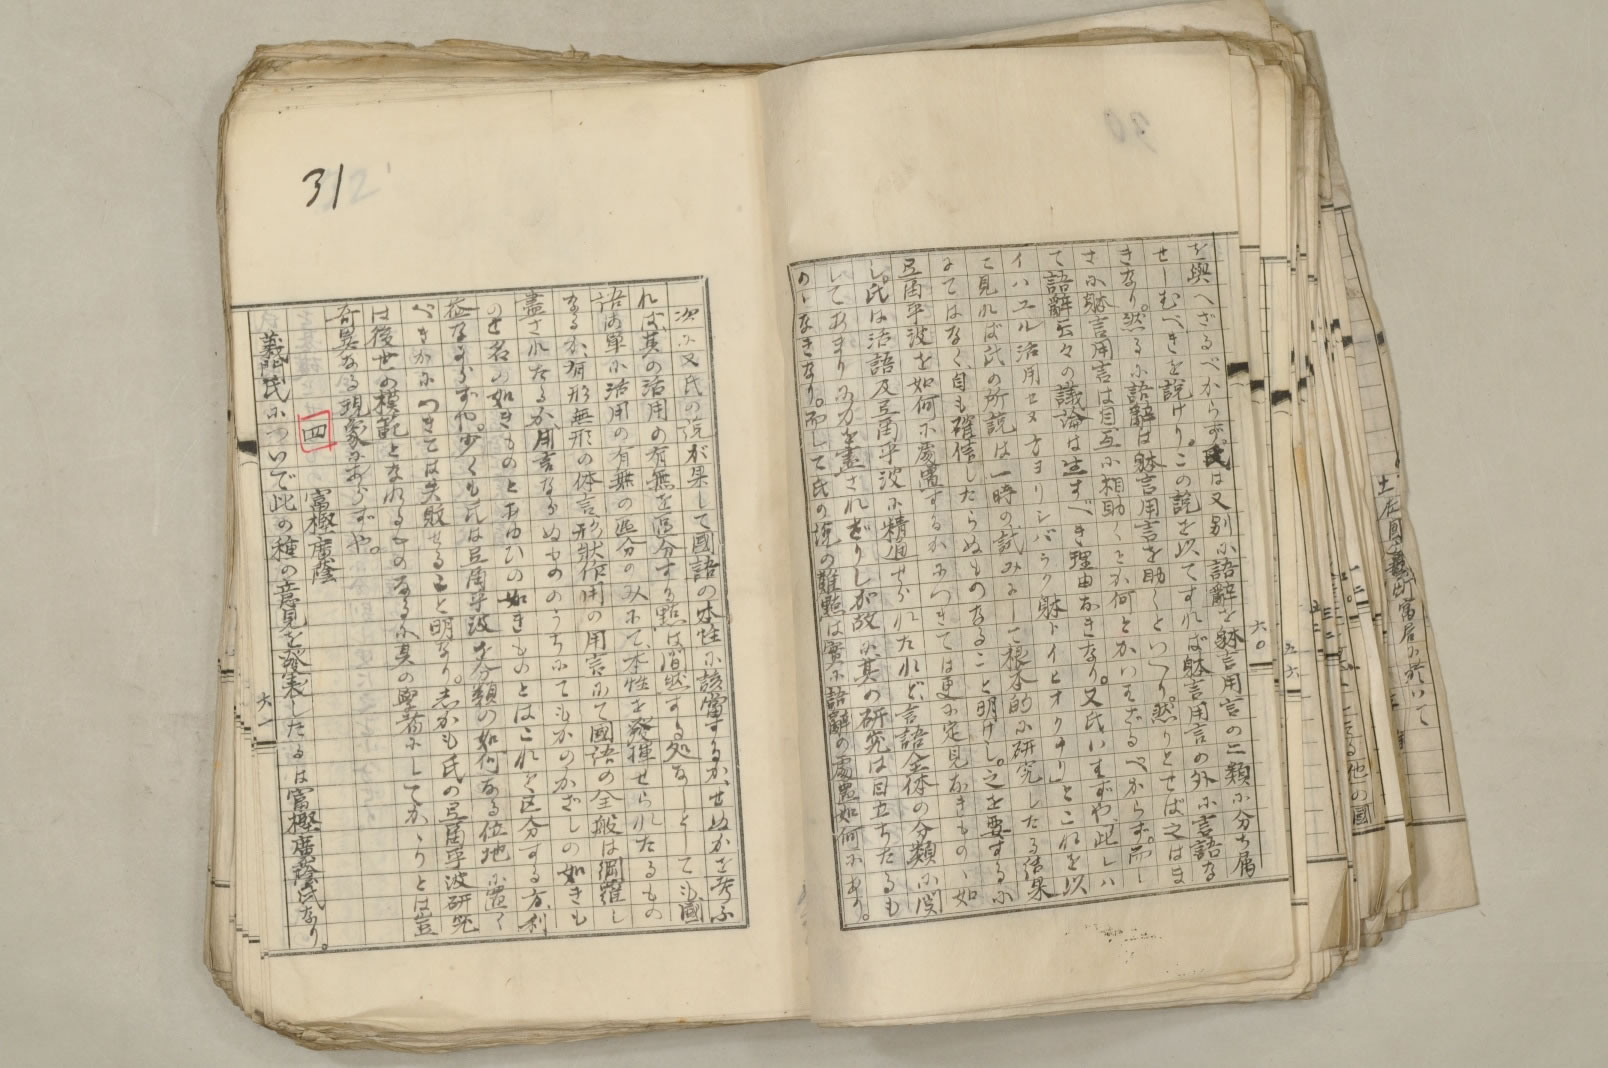 を與へざるべからず氏は又別に語辭を躰言用言の二類に分ち属
せしむべきを説けり。この説を以てすれば躰言用言の外に言語な
きなり。然るに語辭は躰言用言を助くといへり。然りとせば之はま
さに躰言用言は自互に相助くとか何とかいはざるべからず。而し
て語辭云々の議論は生ずべき理由なきなり。又氏いはずや、此レハ
イハユル活用セヌ方ヨリシバラク躰トイヒオクナリ」とこれを以
て見れば氏の所説は一時の試みにして根本的に研究したる結果
にてはなく、自も確信したらぬものなること明けし。之を要するに
弖爾乎波を如何に處置するかにつきては更に定見なきもの、如
し。氏は活語及弖爾乎波に精通せられたれど、言語全体の分類に関
してあまり力を盡されざりしが故に其の研究は目立ちたるも
のゝなきなり。而して氏の説の難點は實に語辭の處置如何にあり。
六〇
31
次に又氏の説が果して國語の本性に該當するか、せぬかを考ふ
れば其の活用の有無を區分する點は間然する処なしとしても國
語は單に活用の有無の區分のみにて、本性を發揮せられたるもの
なるか、有形無形の体言、形狀作用の用言にて國語の全般は網羅し
盡されたるか、用言ならぬもののうちにてもかのかざしの如きも
のと名の如きものとあゆひの如きものとはこれを区分する方、利
益ならずや。少くも氏は弖爾乎波を分類の如何なる位地に置く
べきかにつきては失敗せること明なり。しかも氏の弖爾乎波研究
は後世の模範となれるものなるに、其の學者にしてかゝりとは豈
奇異なる現象にあらずや。
四 富樫廣蔭
義門氏についで此の種の意見を發表したるは富樫廣蔭氏なり。
六一